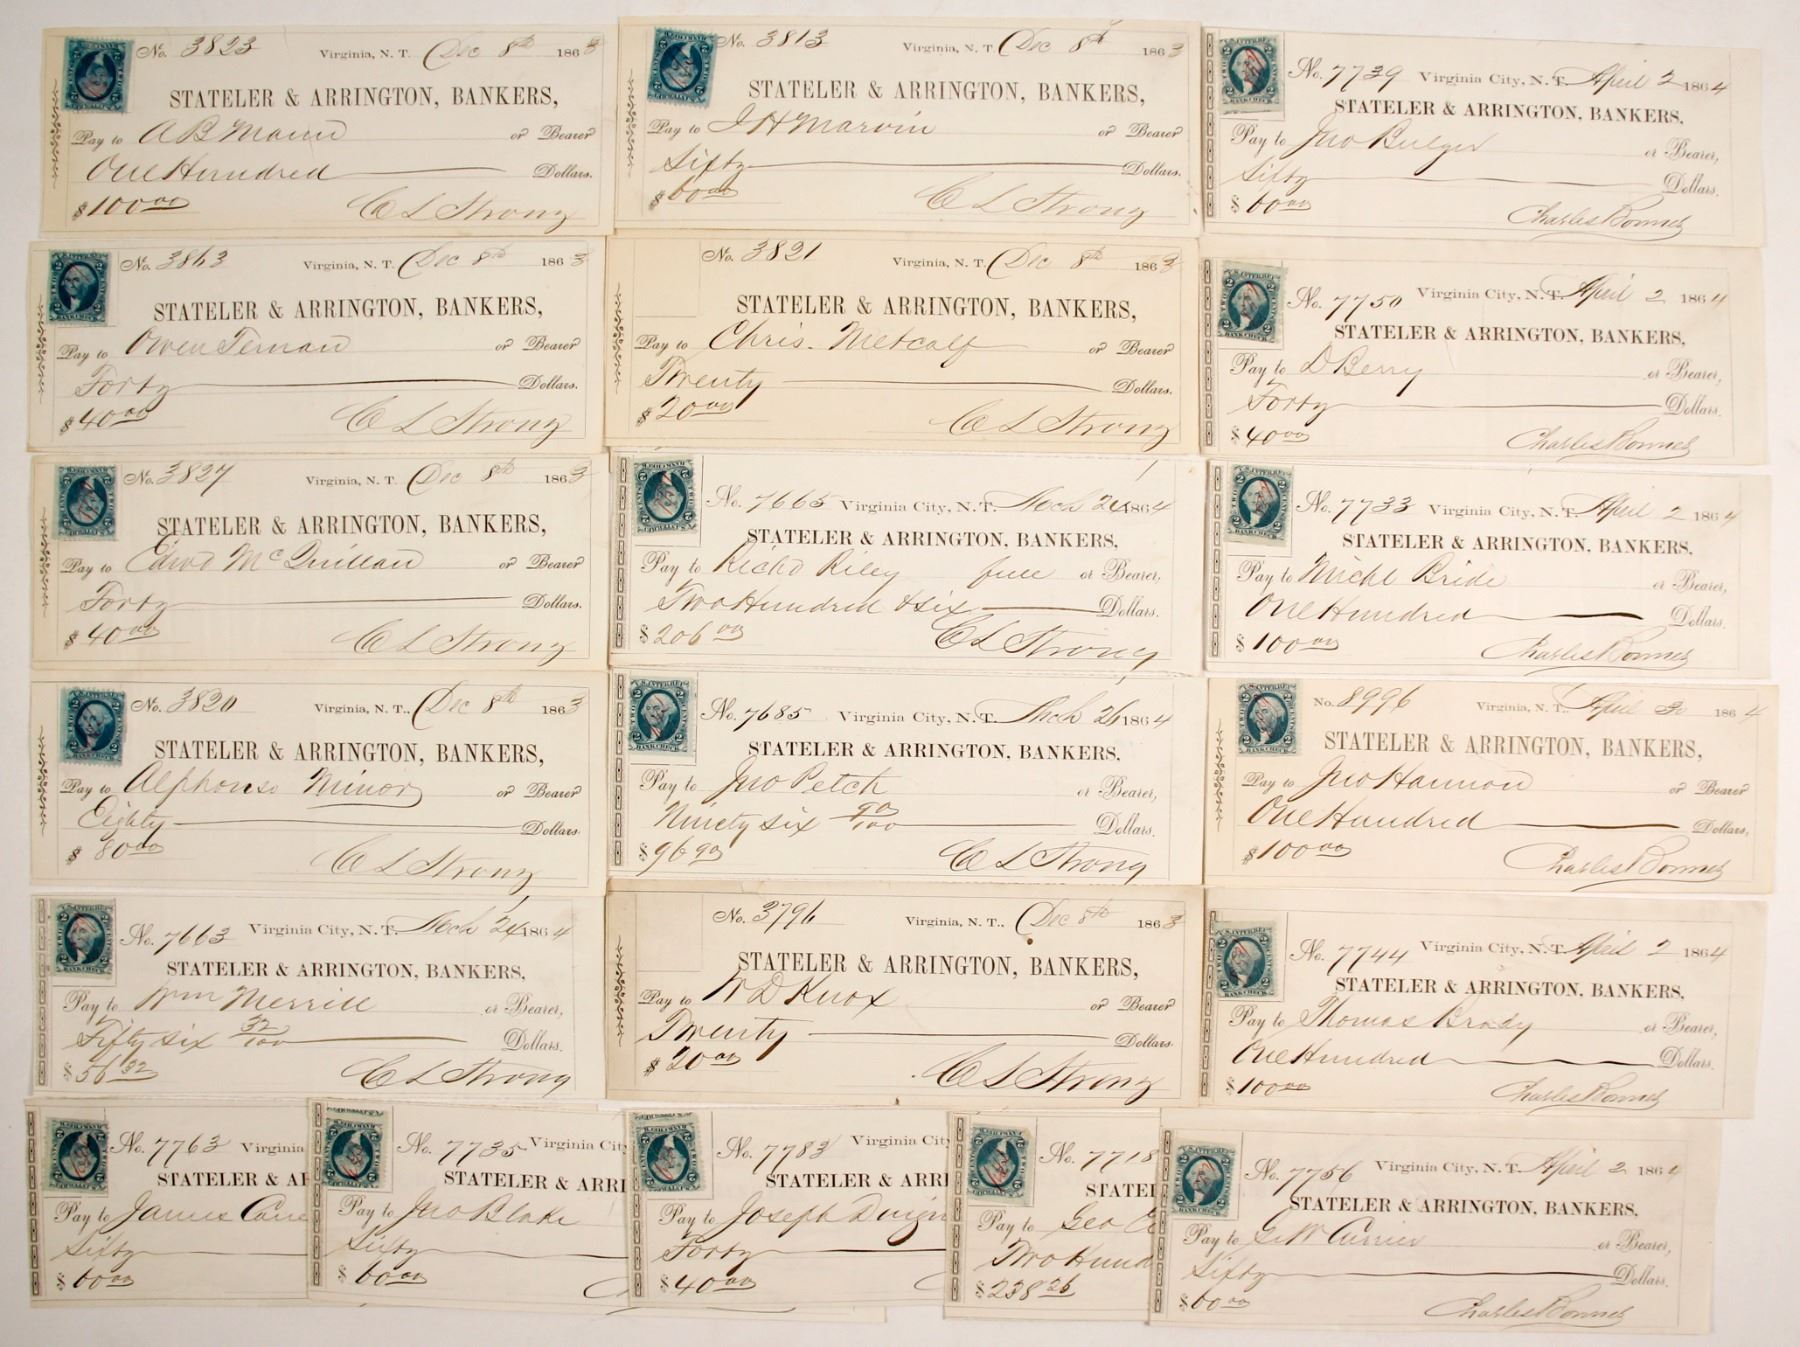 No. 3823 Virginia, N. T. Dec 8th 1863
STATELER & ARRINGTON, BANKERS,
Pay to A B Mann or Bearer
One Hundred Dollars.
$100.00 C L Strong
No. 3813 Virginia, N. T. Dec 8th 1863
STATELER & ARRINGTON, BANKERS,
Pay to J H Marvin or Bearer
Sixty Dollars.
$60.00 C L Strong
No. 7739 Virginia City, N. T. April 2 1864
STATELER & ARRINGTON, BANKERS,
Pay to Jno Bulger or Bearer,
Sixty Dollars.
$60.00 Charles Bonner
No. 3863 Virginia, N. T. Dec 8th 1863
STATELER & ARRINGTON, BANKERS,
Pay to Owen Ternan or Bearer
Forty Dollars.
$40.00 C L Strong
No. 3821 Virginia, N. T. Dec 8th 1863
STATELER & ARRINGTON, BANKERS,
Pay to Chris. Metcalf or Bearer
Twenty Dollars.
$20.00 C L Strong
No. 7750 Virginia City, N. T. April 2 1864
STATELER & ARRINGTON, BANKERS,
Pay to D Berry or Bearer,
Forty Dollars.
$40.00 Charles Bonner
No. 3827 Virginia, N. T. Dec 8th 1863
STATELER & ARRINGTON, BANKERS,
Pay to Edwd McQuillan or Bearer
Forty Dollars.
$40.00 C L Strong
No. 7665 Virginia City, N. T. Mch 24 1864
STATELER & ARRINGTON, BANKERS,
Pay to Richd Riley full or Bearer,
Two Hundred & Six Dollars.
$206.00 C L Strong
No. 7733 Virginia City, N. T. April 2 1864
STATELER & ARRINGTON, BANKERS,
Pay to Michl Bride or Bearer,
One Hundred Dollars.
$100.00 Charles Bonner
No. 3820 Virginia, N. T., Dec 8th 1863
STATELER & ARRINGTON, BANKERS,
Pay to Alphonso Minor or Bearer
Eighty Dollars.
$80.00 C L Strong
No. 7685 Virginia City, N. T. Mch 26 1864
STATELER & ARRINGTON, BANKERS,
Pay to Jno Petch or Bearer,
Ninety six 90/100 Dollars.
$96.90 C L Strong
No. 8996 Virginia, N. T., April 2 1864
STATELER & ARRINGTON, BANKERS,
Pay to Jno Hannon or Bearer
One Hundred Dollars,
$100.00 Charles Bonner
No. 7663 Virginia City, N. T. Mch 24 1864
STATELER & ARRINGTON, BANKERS,
Pay to Wm Merrill or Bearer,
Fifty six 32/100 Dollars.
$56.32 C L Strong
No. 3796 Virginia, N. T., Dec 8th 1863
STATELER & ARRINGTON, BANKERS,
Pay to W D Knox or Bearer
Twenty Dollars.
$20.00 C L Strong
No. 7744 Virginia City, N. T. April 2 1864
STATELER & ARRINGTON, BANKERS,
Pay to Thomas Brady or Bearer,
One Hundred Dollars.
$100.00 Charles Bonner
No. 7763 Virginia
STATELER & AR
Pay to James
Sixty
$60.00
No. 7735 Virginia City
STATELER & ARRI
Pay to Jno Blake
Sixty
$60.00
No. 7783 Virginia City
STATELER & ARRI
Pay to Joseph
Forty
$40.00
No. 7718
STATEL
Pay to Geo
Two Hund
$238.26
No. 7756 Virginia City, N. T. April 2 1864
STATELER & ARRINGTON, BANKERS,
Pay to G W Currier or Bearer,
Sixty Dollars.
$60.00 Charles Bonner